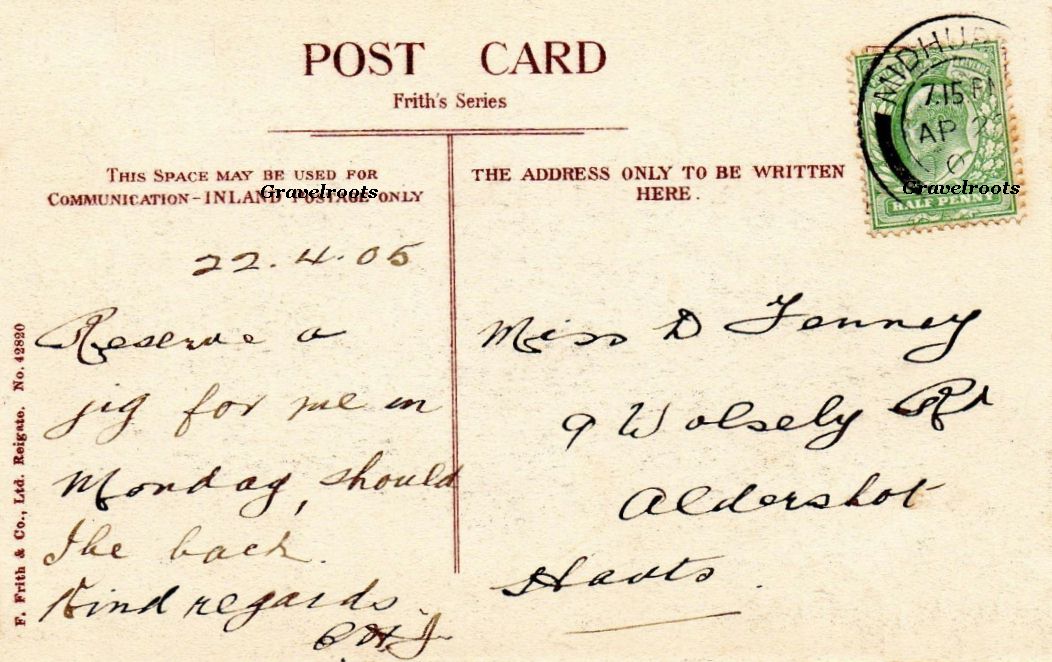 POST CARD
Frith's Series
THIS SPACE MAY BE USED FOR
COMMUNICATION-INLAND POSTAGE ONLY
Gravelroots
THE ADDRESS ONLY TO BE WRITTEN
HERE.
MIDHUR
7.15 PM
AP 22
HALF PENNY
Gravelroots
22.4.05
Reserve a
jig for me on
Monday, should
I be back.
Kind regards.
Miss D Fenney
9 Wolsely Rd
Aldershot
Hants.
F. Frith & Co., Ltd. Reigate. No. 42820